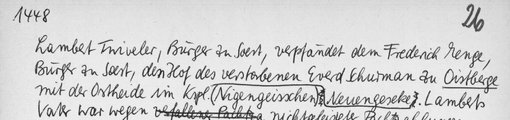 1448
26
Lambert Twiveler, Bürger zu Soest, verpfändet dem Frederich Menge,
Bürger zu Soest, den Hof des verstorbenen Everd Schurman zu Oistberge
mit der Ostheide im Kspl. (Nigengeisschen) Neuengeseke). Lamberts
Vater war wegen